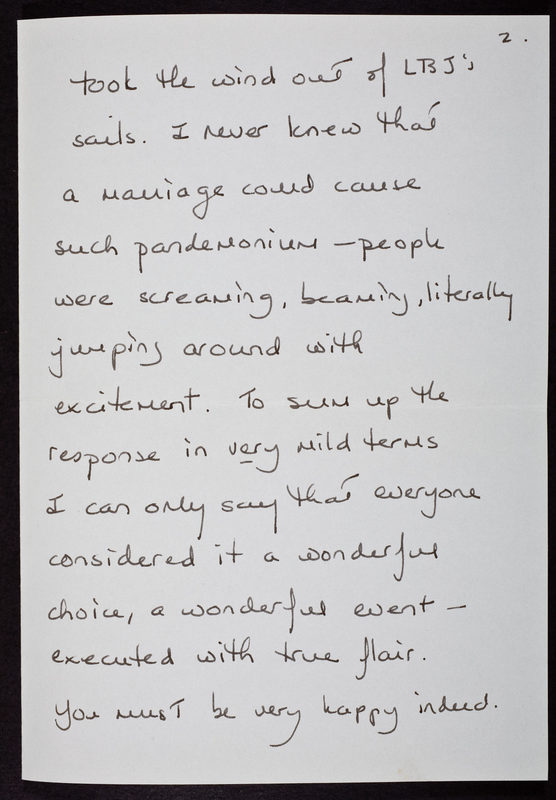 2.
took the wind out of LBJ's
sails. I never knew that
a marriage could cause
such pandemonium — people
were screaming, beaming, literally
jumping around with
excitement. To sum up the
response in very mild terms
I can only say that everyone
considered it a wonderful
choice, a wonderful event —
executed with true flair.
You must be very happy indeed.